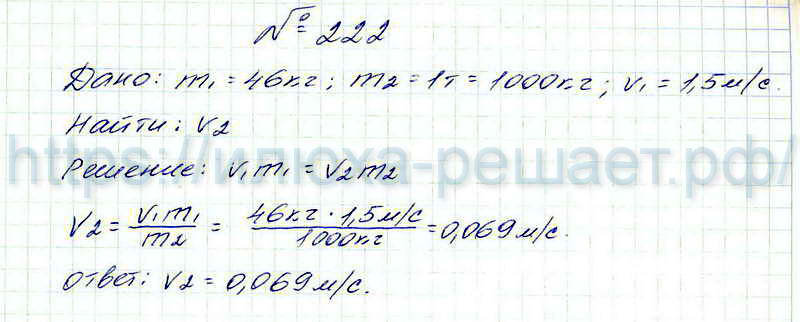 № 222
Дано: m₁ = 46кг; m2 = 1т = 1000кг; v₁ = 1,5м/с.
Найти: v2
https://илюха-решает.рф/
Решение: v₁m₁ = v2m2
v2 = v₁m₁/m2 = 46кг · 1,5м/с/1000кг = 0,069м/с.
Ответ: v2 = 0,069м/с.